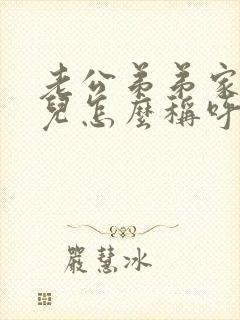 老公弟弟家
兒怎麼稱呼
嚴慧冰